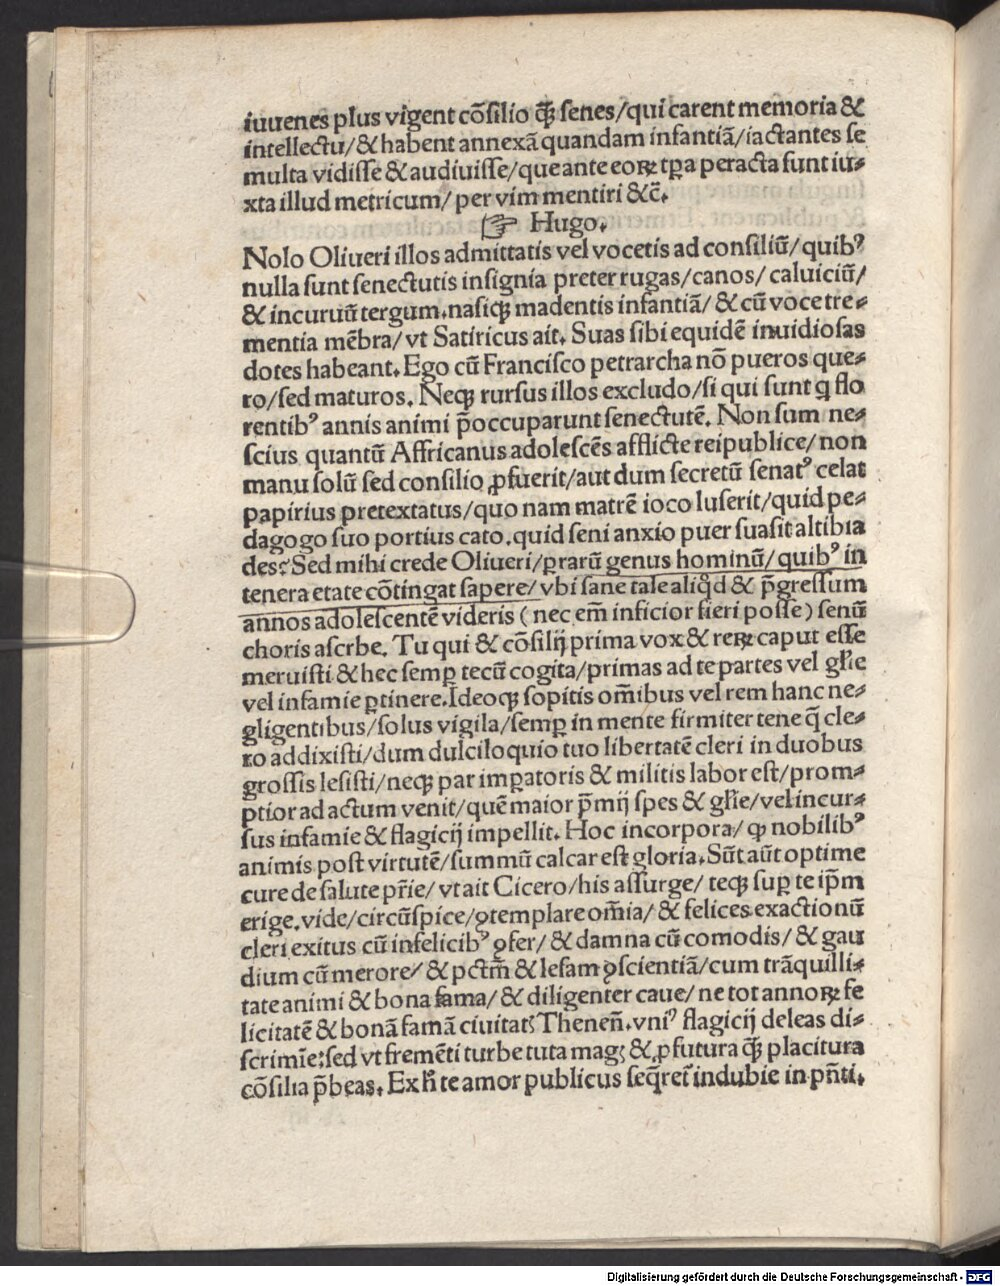 iuuenes plus vigent cõsilio q̃ꝫ senes/qui carent memoria &
intellectu/& habent annexã quandam infantiã/iactantes se
multa vidisse & audiuisse/que ante eoꝝ tꝑa peracta sunt iu⸗
xta illud metricum/ per vim mentiri &c̃.
☞ Hugo.
Nolo Oliueri illos admittatis vel vocetis ad consiliũ/quibꝰ
nulla sunt senectutis insignia preter rugas/canos/ caluiciũ/
& incuruũ tergum.nasiqꝫ madentis infantiã/ & cũ voce tre⸗
mentia mẽbra/ vt Satiricus ait. Suas sibi equidẽ inuidiosas
dotes habeant. Ego cũ Francisco petrarcha nõ pueros que⸗
ro/sed maturos. Neqꝫ rursus illos excludo/si qui sunt q̇ flo
rentibꝰ annis animi p̃occuparunt senectutẽ. Non sum ne⸗
scius quantũ Affricanus adolescẽs afflicte reipublice/ non
manu solũ sed consilio ꝓfuerit/aut dum secretũ senatꝰ celat
papirius pretextatus/quo nam matrẽ ioco luserit/quid pe⸗
dagogo suo portius cato.quid seni anxio puer suasit altibia
des? Sed mihi crede Oliueri/ꝑrarũ genus hominũ/ quibꝰ in
tenera etate cõtingat sapere/ vbi sane tale aliq̇d & p̃gressum
annos adolescentẽ videris ( nec em̃ inficior fieri posse ) senũ
choris ascrbe. Tu qui & cõsilij prima vox & reꝝ caput esse
meruisti & hec semꝑ tecũ cogita/primas ad te partes vel gl̃ie
vel infamie ꝑtinere.Ideoqꝫ sopitis om̃ibus vel rem hanc ne⸗
gligentibus/solus vigila/semꝑ in mente firmiter tene q̃ cle⸗
ro addixisti/dum dulciloquio tuo libertatẽ cleri in duobus
grossis lesisti/neqꝫ par imꝑatoris & militis labor est/prom⸗
ptior ad actum venit/quẽ maior p̃mij spes & gl̃ie/vel incur⸗
sus infamie & flagicij impellit. Hoc incorpora/ ꝙ nobilibꝰ
animis post virtutẽ/summũ calcar est gloria.Sũt aũt optime
cure de salute pr̃ie/ vt ait Cicero/his assurge/ teqꝫ suꝑ te ip̃m
erige.vide/circũspice/ꝯtemplare om̃ia/ & felices exactionũ
cleri exitus cũ infelicibꝰ ꝯfer/ & damna cũ comodis/ & gau
dium cũ merore/ & pctm̃ & lesam ꝯscientiã/cum trãquilli⸗
tate animi & bona fama/ & diligenter caue/ ne tot annoꝝ fe
licitatẽ & bonã famã ciuitatꝭ Thenen̄.vniꝰ flagicij deleas di⸗
scrimĩe:sed vt fremẽti turbe tuta magꝭ & ꝓfutura q̃ꝫ placitura
cõsilia p̃beas. Ex h̃ te amor publicus seq̃ret̃ indubie in pñti.

Digitalisierung gefördert durch die Deutsche Forschungsgemeinschaft - DFG